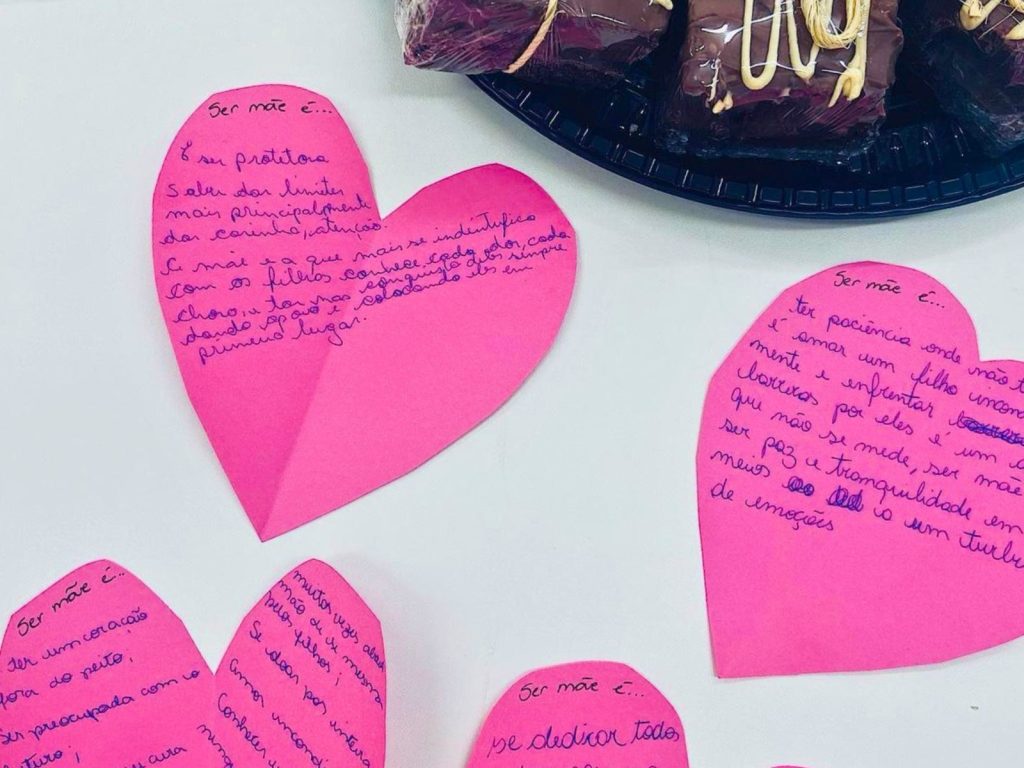 Ser mãe é...
É ser protetora
Saber dar limites
mais principalmente
dar carinho, atenção.
mãe é a que mais se indentifica
com os filhos conhece cada dor, cada
choro, e tar nas conquista deles sempre
dando apoio e colocando eles em
primeiro lugar.
Ser mãe é...
ter paciência onde não t
é amar um filho incon
mente e enfrentar
barreiras por eles é um a
que não se mede, ser mãe
ser paz e tranquilidade em
meios a um turbi
de emoções
Ser mãe é...
ter um coração
fora do peito;
ser preocupada com o
futuro;
cura
muitas vezes abdi
mão de si mesma
pelos filhos;
Se doar por inteiro
Amor incondi
Conhecer
ning
Ser mãe é...
se dedicar todos